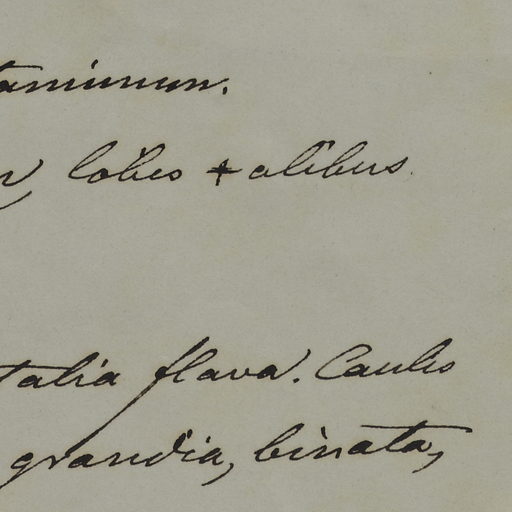 taminum.
lobis + alibus
talia flava. Caulis
grandia, binata,